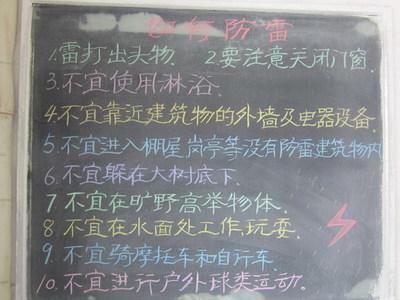 如何防雷
1.雷打出头物. 2要注意关闭门窗.
3.不宜使用淋浴.
4.不宜靠近建筑物的外墙及电器设备.
5.不宜进入棚屋岗亭等没有防雷建筑物内
6.不宜躲在大树底下.
7不宜在旷野高举物体.
8不宜在水面处工作.玩耍.
9.不宜骑摩托车和自行车.
10.不宜进行户外球类运动.